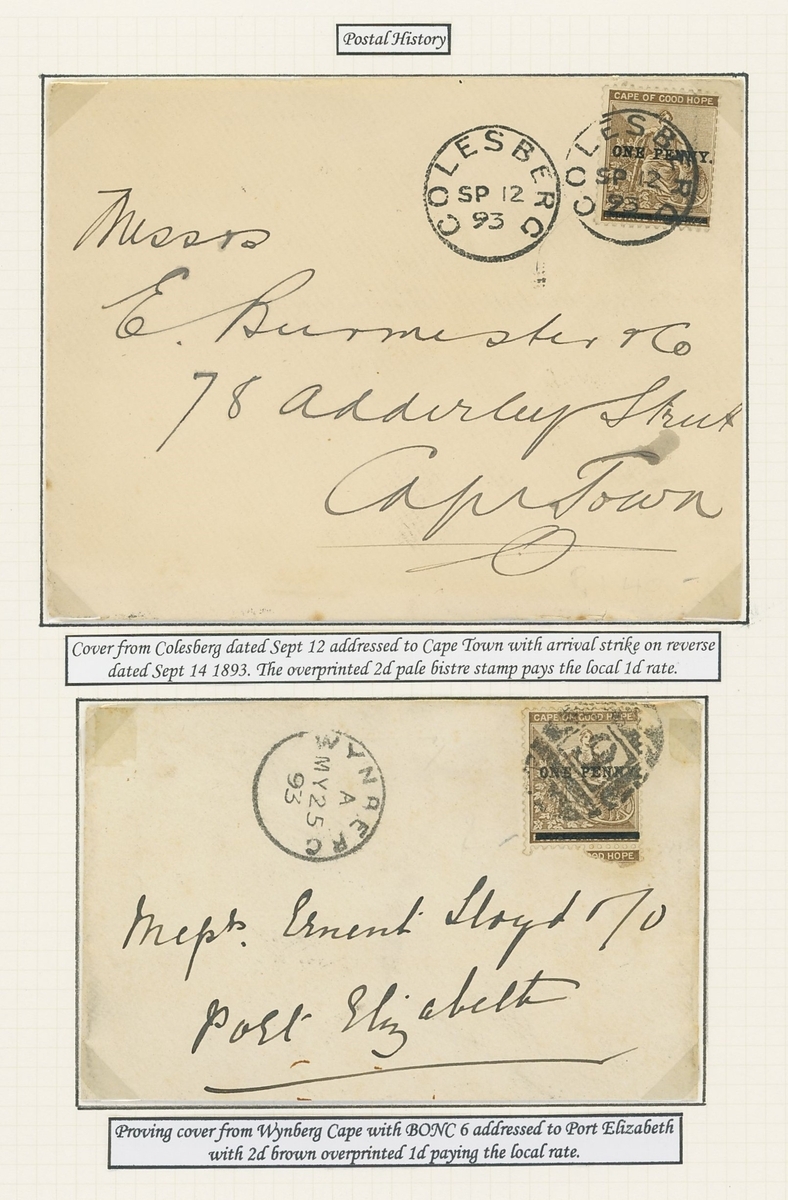 Postal History
CAPE OF GOOD HOPE
ONE PENNY.
COLESBERG
SP 12
93
COLESBERG
SP 12
93
Messrs
E. Burmester & Co
78 Adderley Street
Cape Town
Cover from Colesberg dated Sept 12 addressed to Cape Town with arrival strike on reverse
dated Sept 14 1893. The overprinted 2d pale bistre stamp pays the local 1d rate.
CAPE OF GOOD HOPE
ONE PENNY.
OOD HOPE
WYNBERG
A
MY 25
93
Messrs. Ernest Lloyd
Port Elizabeth
Proving cover from Wynberg Cape with BONC 6 addressed to Port Elizabeth
with 2d brown overprinted 1d paying the local rate.